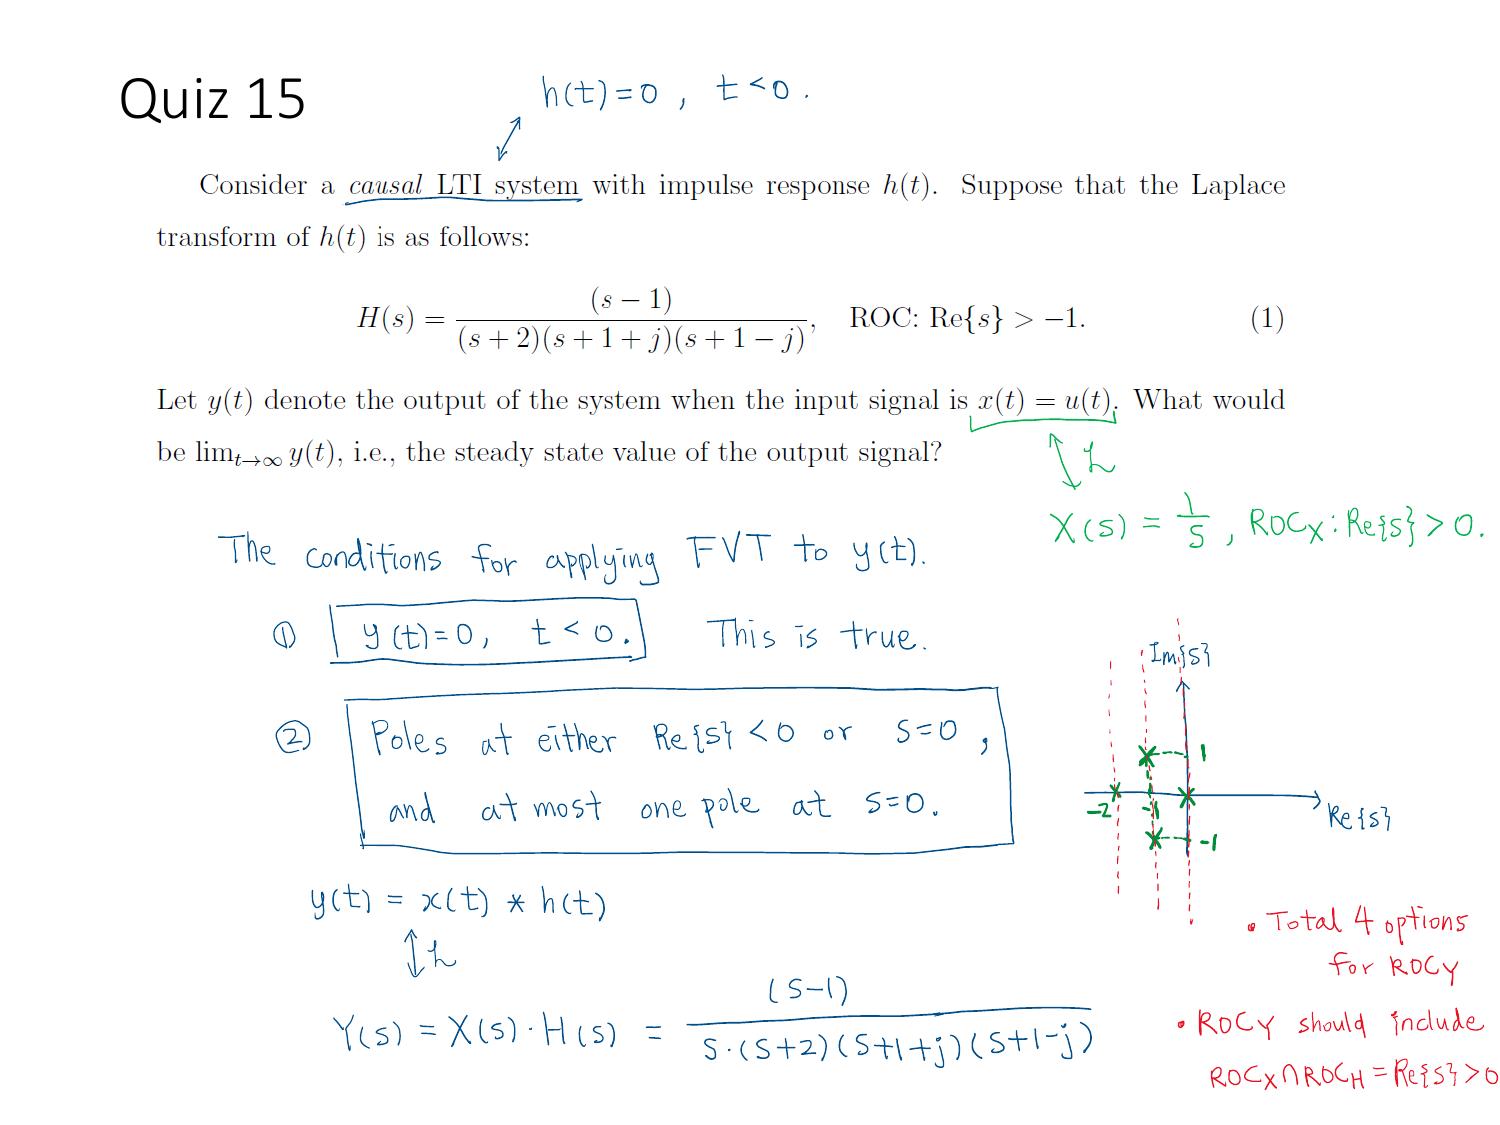 Quiz 15
h(t)=0 , t<0.
Consider a causal LTI system with impulse response h(t). Suppose that the Laplace
transform of h(t) is as follows:
H(s) = (s − 1) / (s + 2)(s + 1 + j)(s + 1 − j), ROC: Re{s} > −1. (1)
Let y(t) denote the output of the system when the input signal is x(t) = u(t). What would
be lim_{t→∞} y(t), i.e., the steady state value of the output signal?
↕ L
X(s) = 1/s , ROC_X : Re{s} > 0.
The conditions for applying FVT to y(t).
① y(t)=0, t<0. This is true.
② Poles at either Re{s}<0 or s=0,
and at most one pole at s=0.
Im{s}
1
-2 -1
Re{s}
-1
y(t) = x(t) * h(t)
↕ L
Y(s) = X(s)·H(s) = (s-1) / s·(s+2)(s+1+j)(s+1-j)
• Total 4 options
for ROC_Y
• ROC_Y should include
ROC_X∩ROC_H = Re{s}>0